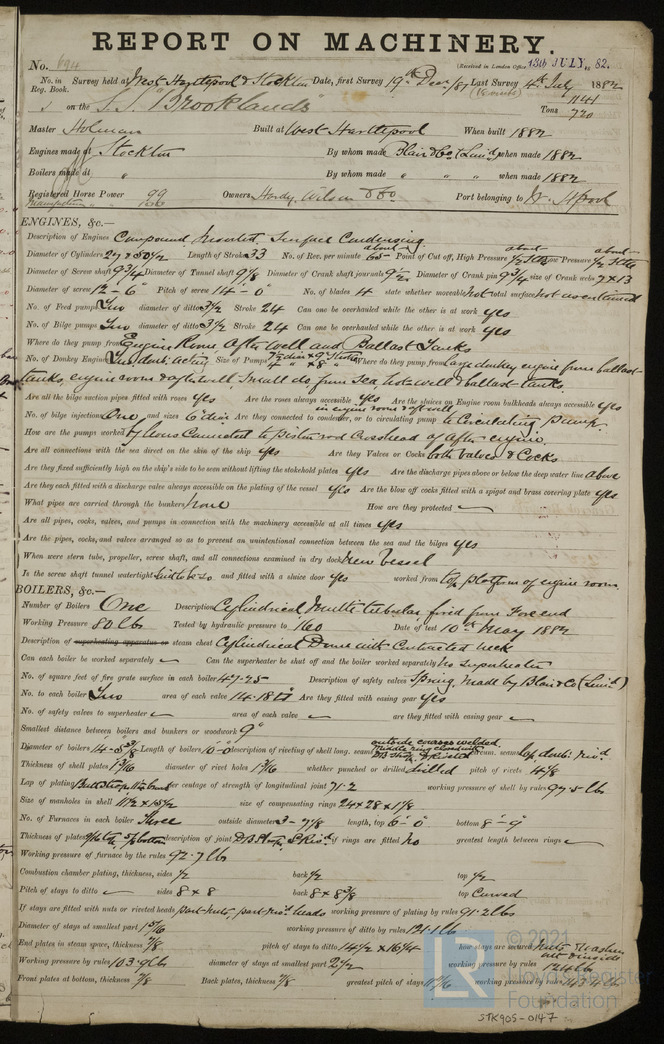 REPORT ON MACHINERY.
No. 694 (Received in London Office 13th JULY, 82.
No. in Survey held at West Hartlepool & Stockton Date, first Survey 19th Decr/81 Last Survey 4th July 1882
Reg. Book.
on the S.S. "Brooklands" Tons 1141
720
Master Holman Built at West Hartlepool When built 1882
Engines made at Stockton By whom made Blair & Co (Limd) when made 1882
Boilers made at " By whom made " " " when made 1882
Registered Horse Power 99 Owners Hardy, Wilson & Co Port belonging to W. Hpool
ENGINES, &c.—
Description of Engines Compound Inverted Surface Condensing
Diameter of Cylinders 27 & 50 1/2 Length of Stroke 33 No. of Rev. per minute about 65 Point of Cut off, High Pressure about 1/2 Low Pressure about 1/2
Diameter of Screw shaft 9 3/4 Diameter of Tunnel shaft 9 1/8 Diameter of Crank shaft journals 9 1/2 Diameter of Crank pin 9 3/4 size of Crank webs 7 x 13
Diameter of screw 12-6" Pitch of screw 14'-0" No. of blades 4 state whether moveable not total surface not ascertained
No. of Feed pumps Two diameter of ditto 3 1/2 Stroke 24 Can one be overhauled while the other is at work yes
No. of Bilge pumps Two diameter of ditto 3 1/2 Stroke 24 Can one be overhauled while the other is at work yes
Where do they pump from Engine Room After well and Ballast Tanks
No. of Donkey Engines Two, doub. acting Size of Pumps Where do they pump from Large donkey engine from ballast
tanks, engine room & after well, small do from sea, hot well & ballast tanks.
Are all the bilge suction pipes fitted with roses yes Are the roses always accessible yes Are the sluices on Engine room bulkheads always accessible yes
No. of bilge injections One and sizes 6" dia Are they connected to condenser, or to circulating pump to Circulating Pump.
How are the pumps worked by levers Connected to piston rod Crosshead of after engine
Are all connections with the sea direct on the skin of the ship yes Are they Valves or Cocks both Valves & Cocks
Are they fixed sufficiently high on the ship's side to be seen without lifting the stokehold plates yes Are the discharge pipes above or below the deep water line above
Are they each fitted with a discharge valve always accessible on the plating of the vessel yes Are the blow off cocks fitted with a spigot and brass covering plate yes
What pipes are carried through the bunkers none How are they protected —
Are all pipes, cocks, valves, and pumps in connection with the machinery accessible at all times yes
Are the pipes, cocks, and valves arranged so as to prevent an unintentional connection between the sea and the bilges yes
When were stern tube, propeller, screw shaft, and all connections examined in dry dock New Vessel
Is the screw shaft tunnel watertight said to be so and fitted with a sluice door yes worked from top platform of engine room
BOILERS, &c.—
Number of Boilers One Description Cylindrical Multi-tubular fired from Fore end
Working Pressure 80 lb Tested by hydraulic pressure to 160 Date of test 10th May 1882
Description of superheating apparatus or steam chest Cylindrical Dome with Contracted neck
Can each boiler be worked separately — Can the superheater be shut off and the boiler worked separately No superheater
No. of square feet of fire grate surface in each boiler 47.25 Description of safety valves Spring, made by Blair & Co (Limd)
No. to each boiler Two area of each valve 14.18 □" Are they fitted with easing gear yes
No. of safety valves to superheater — area of each valve — are they fitted with easing gear —
Smallest distance between boilers and bunkers or woodwork 9"
Diameter of boilers 14-5 3/8 Length of boilers 10-0 description of riveting of shell long. seams outside courses welded. circum. seams Lap doub: rivd
Thickness of shell plates 1 3/16 diameter of rivet holes 1 3/16 whether punched or drilled drilled pitch of rivets 4 5/8
Lap of plating per centage of strength of longitudinal joint 71.2 working pressure of shell by rules 97.5 lb
Size of manholes in shell 11 1/2 x 15 1/2 size of compensating rings 24 x 28 x 1 1/8
No. of Furnaces in each boiler Three outside diameter 3-7 7/8 length, top 6'-0" bottom 8'-9"
Thickness of plates description of joint if rings are fitted No greatest length between rings —
Working pressure of furnace by the rules 92.7 lb
Combustion chamber plating, thickness, sides 1/2 back 1/2 top 1/2
Pitch of stays to ditto — sides 8 x 8 back 8 x 8 3/8 top Curved
If stays are fitted with nuts or riveted heads part nuts, part rivd heads working pressure of plating by rules 91.2 lbs
Diameter of stays at smallest part 1 5/16 working pressure of ditto by rules 121.1 lb
End plates in steam space, thickness 7/8 pitch of stays to ditto 14 1/2 x 16 1/4 how stays are secured nuts & washers
Working pressure by rules 103.9 lb diameter of stays at smallest part 2 1/2 working pressure by rules 124 lb
Front plates at bottom, thickness 7/8 Back plates, thickness 7/8 greatest pitch of stays working pressure by rules
© 2021
LR
Lloyd's Register
Foundation
STK905-0147